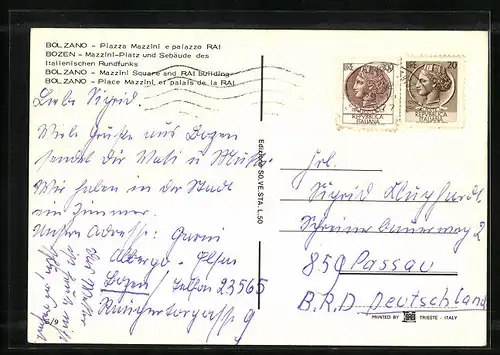 BOLZANO - Piazza Mazzini e palazzo RAI
BOZEN - Mazzini-Platz und Gebäude des
Italienischen Rundfunks
BOLZANO - Mazzini Square and RAI building
BOLZANO - Place Mazzini et palais de la RAI
Liebe Sigrid.
Viele Grüsse aus Bozen
sendet dir Vati u
Wir haben in der Stadt
ein Zimmer.
Unsere Adresse: Garni
Albergo
Bozen / Telfon 23565
9
Edizione SO.VE.STA. L.50
LIRE
LIRE 20
REPVBBLICA
ITALIANA
REPVBBLICA
ITALIANA
Frl.
Sigrid Klughardt
Schreinerbauerweg 2
850 Passau
B.R.D Deutschland
PRINTED BY TRIESTE - ITALY